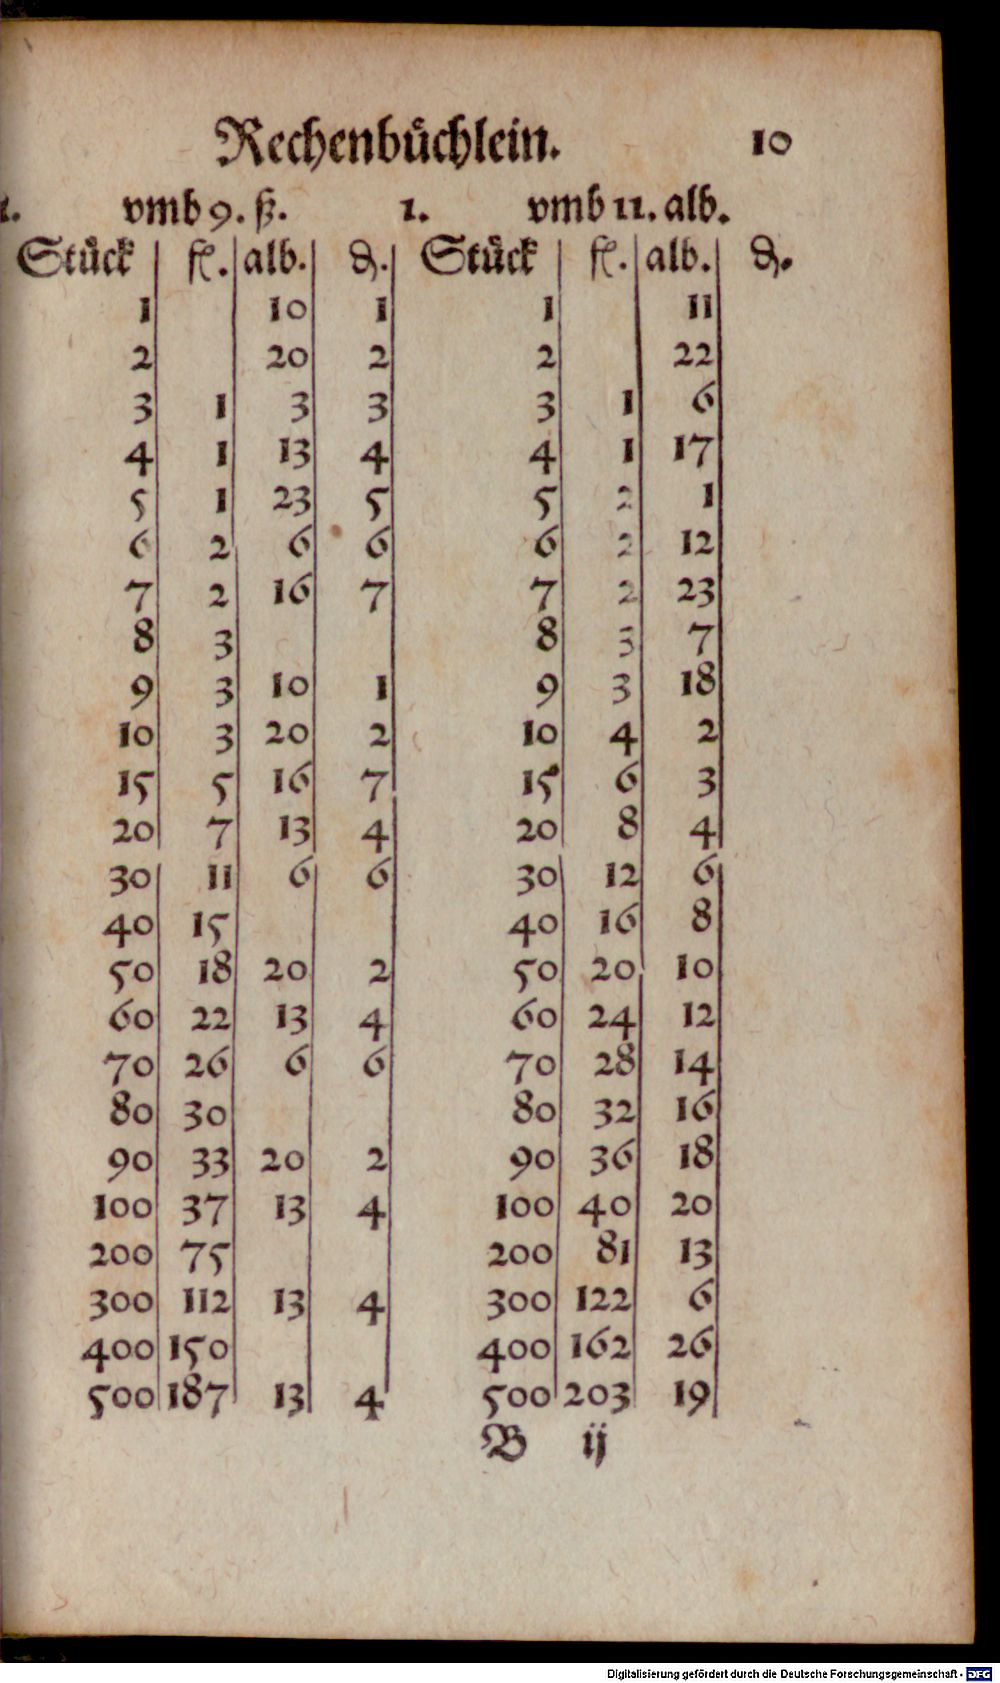 Rechenbuͤchlein. 10
1. vmb 9. ß. 1. vmb 11. alb.
Stuͤck fl. alb. ₰. Stuͤck fl. alb. ₰.
1 10 1 1 11
2 20 2 2 22
3 1 3 3 3 1 6
4 1 13 4 4 1 17
5 1 23 5 5 2 1
6 2 6 6 6 2 12
7 2 16 7 7 2 23
8 3 8 3 7
9 3 10 1 9 3 18
10 3 20 2 10 4 2
15 5 16 7 15 6 3
20 7 13 4 20 8 4
30 11 6 6 30 12 6
40 15 40 16 8
50 18 20 2 50 20 10
60 22 13 4 60 24 12
70 26 6 6 70 28 14
80 30 80 32 16
90 33 20 2 90 36 18
100 37 13 4 100 40 20
200 75 200 81 13
300 112 13 4 300 122 6
400 150 400 162 26
500 187 13 4 500 203 19
B ij
Digitalisierung gefördert durch die Deutsche Forschungsgemeinschaft - DFG